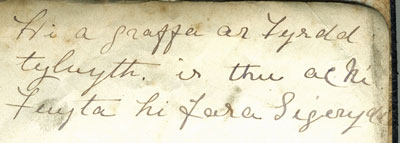 Hi a graffa ar Fyrdd
tylwyth. is thu a Chi
Fwyta hi Fara Sigeryd